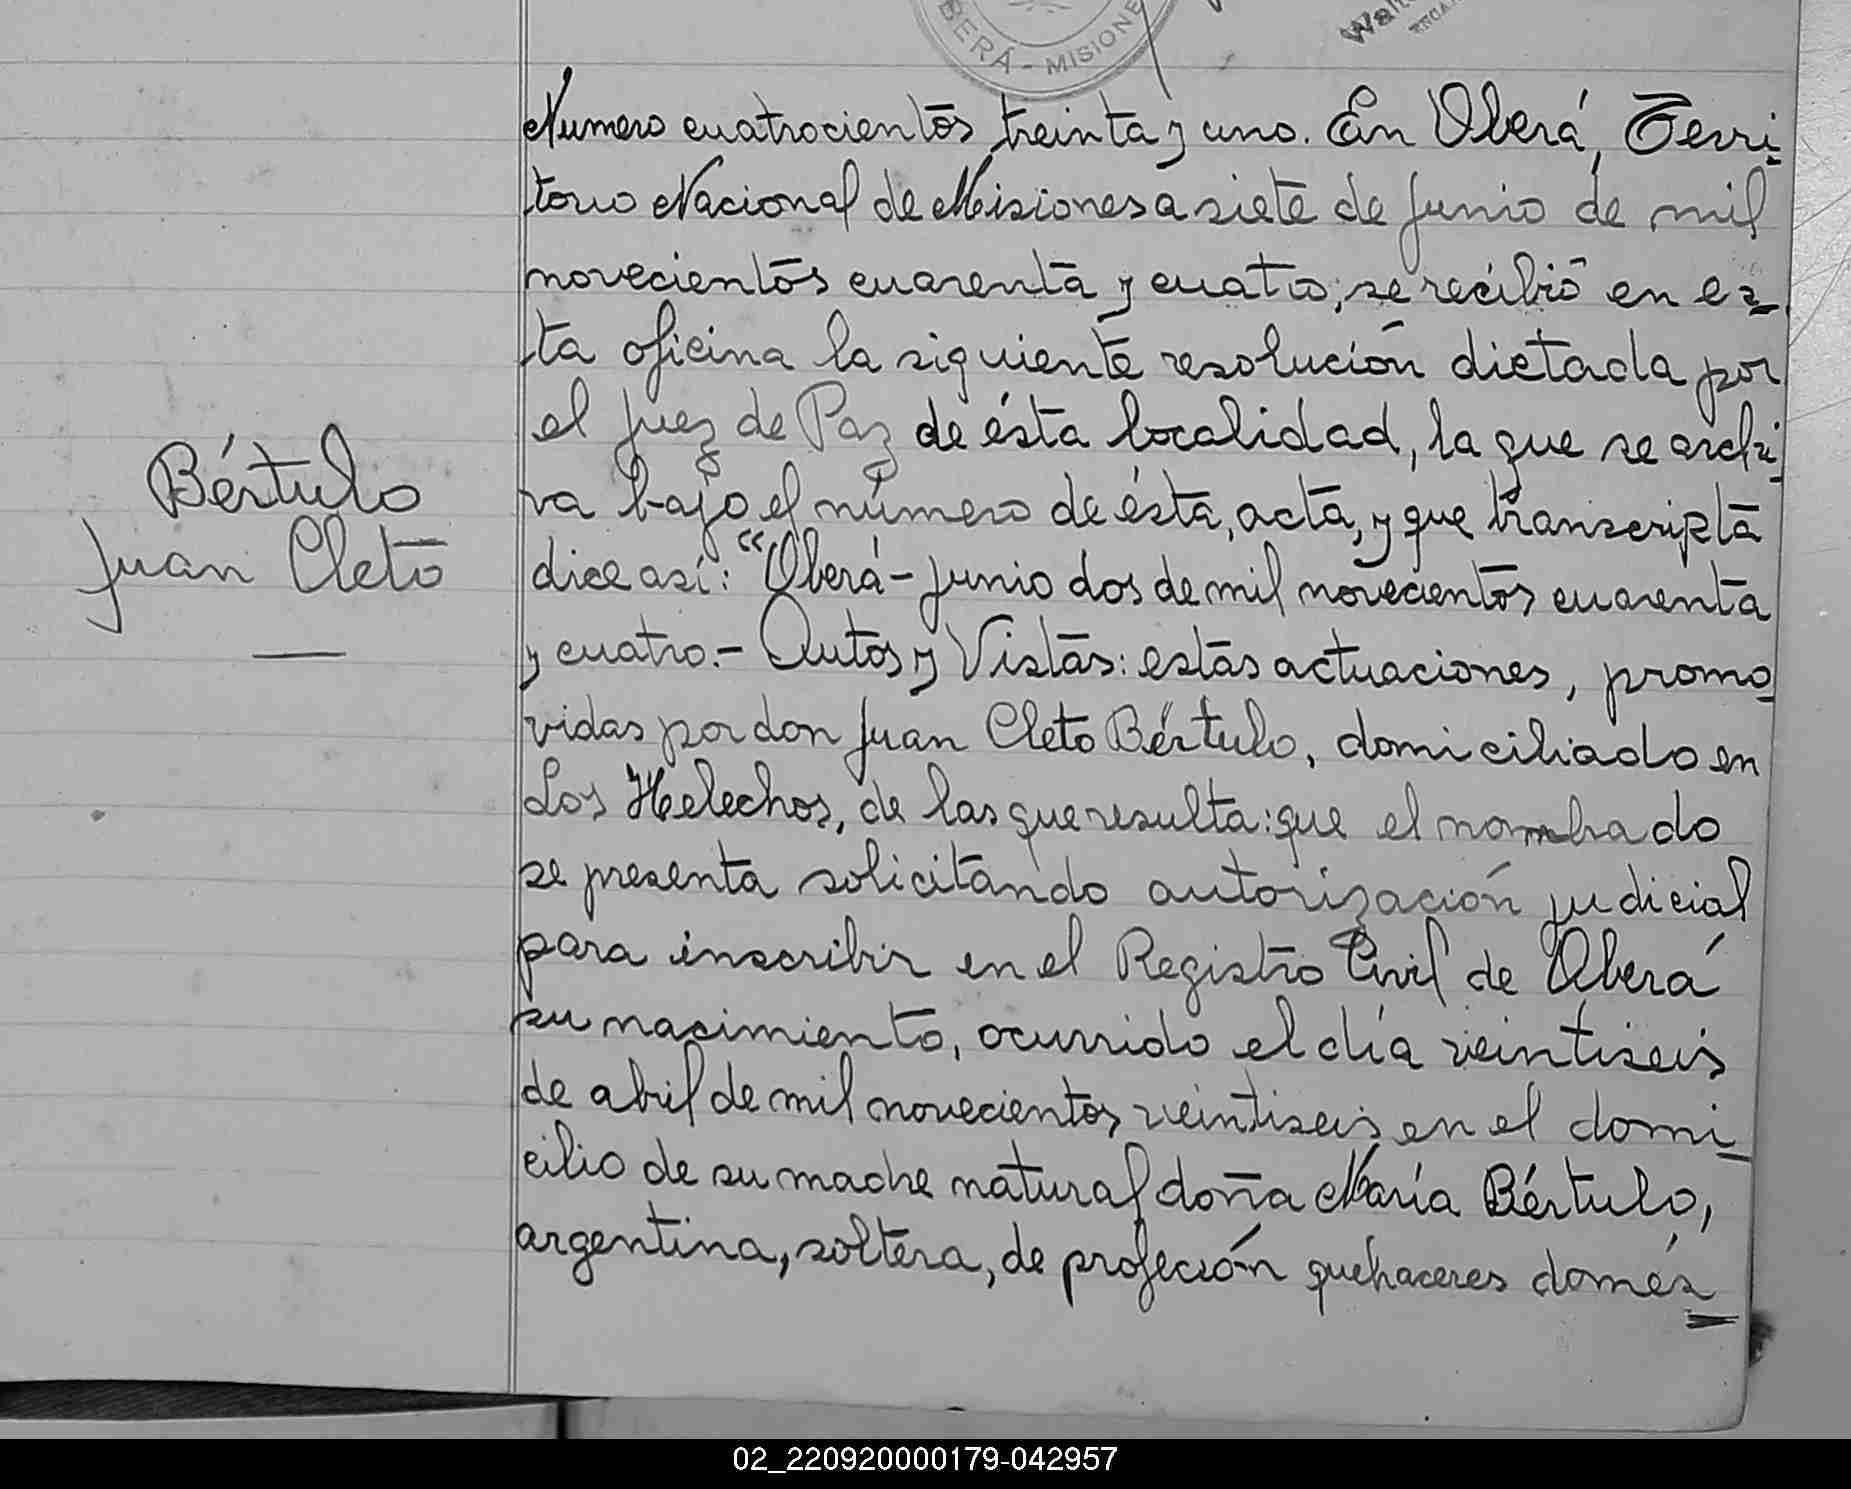 BERÁ - MISIONE
Numero cuatrocientos treinta y uno. En Oberá, Terri-
torio Nacional de Misiones a siete de Junio de mil
novecientos cuarenta y cuatro; se recibió en es-
ta oficina la siguiente resolución dictada por
el Juez de Paz de ésta localidad, la que se archi-
va bajo el número de ésta, acta, y que transcripta
dice así: "Oberá - Junio dos de mil novecientos cuarenta
y cuatro.- Autos y Vistas: estas actuaciones, promo-
vidas por don Juan Cleto Bértulo, domiciliado en
Los Helechos, de las que resulta: que el nombrado
se presenta solicitando autorización judicial
para inscribir en el Registro Civil de Oberá
su nacimiento, ocurrido el día veintiseis
de abril de mil novecientos veintiseis en el domi-
cilio de su madre natural doña María Bértulo,
argentina, soltera, de profeción quehaceres domés-
Bértulo
Juan Cleto
02_220920000179-042957